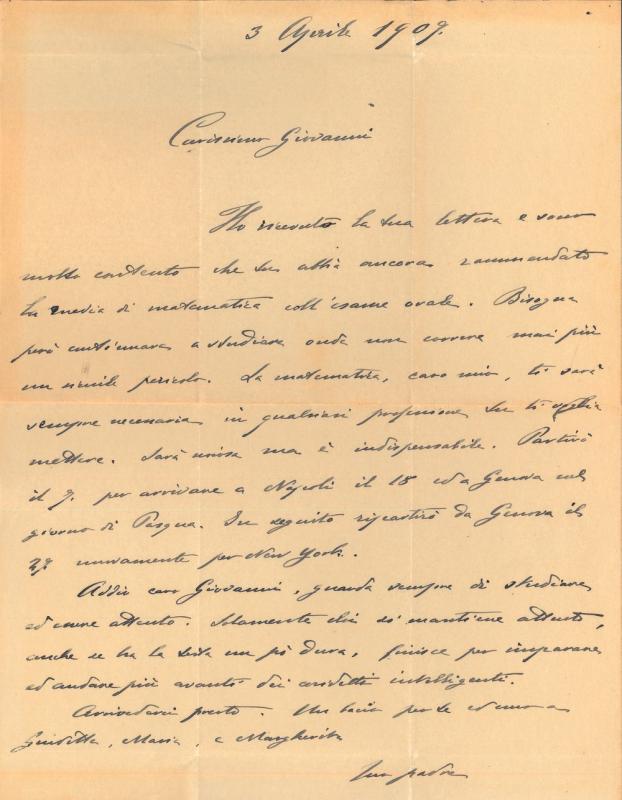 3 Aprile 1909.
Carissimo Giovanni
Ho ricevuto la tua lettera e sono
molto contento che tu abbia ancora rammendato
la media di matematica coll'esame orale. Bisogna
però continuare a studiare onde non correre mai più
un simile pericolo. La matematica, caro mio, ti sarà
sempre necessaria in qualsiasi professione tu ti voglia
mettere. Sarà noiosa ma è indispensabile. Partirò
il 7. per arrivare a Napoli il 18 ed a Genova nel
giorno di Pasqua. In seguito ripartirò da Genova il
27 nuovamente per New York.
Addio caro Giovanni, guarda sempre di studiare
ed essere attento. Solamente chi si mantiene attento,
anche se ha la testa un pò dura, finisce per imparare
ed andare più avanti dei cosidetti intelligenti.
Arrivederci presto. Un bacio per te ed uno a
Giuditta, Maria, e Margherita
Tuo padre